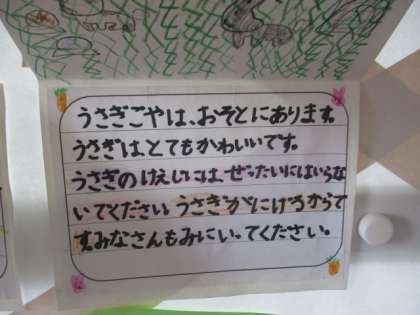 うさぎごやは、おそとにあります。
うさぎは、とてもかわいいです。
うさぎのけえじには、ぜったいにはいらな
いでください。うさぎがにげるからで
す。みなさんもみにいってください。